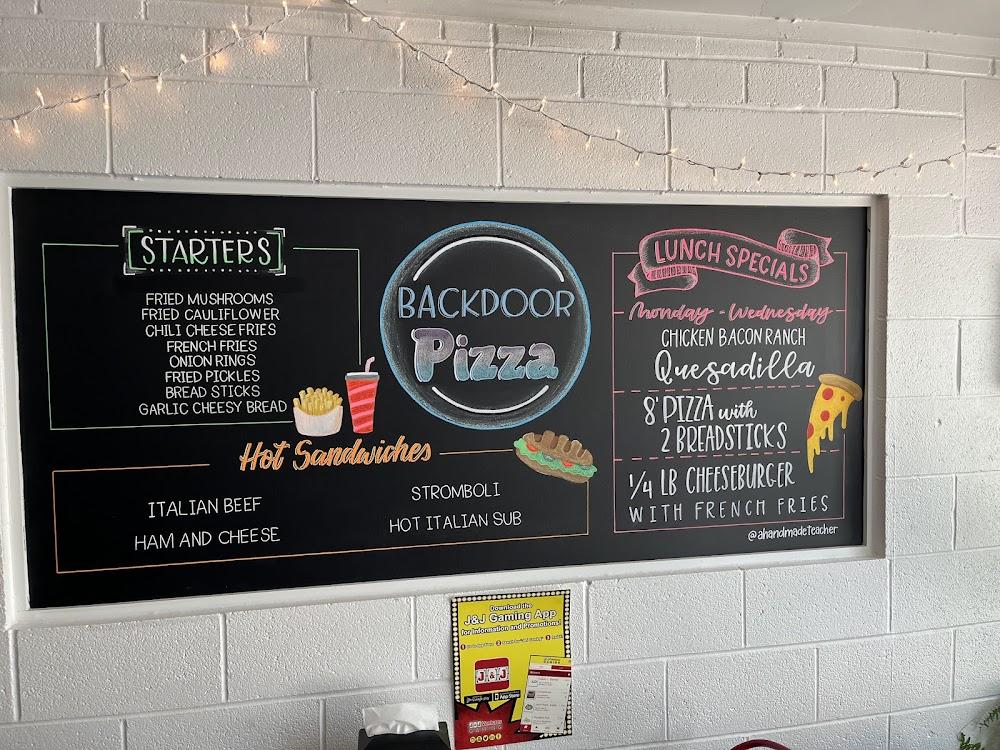 STARTERS
FRIED MUSHROOMS
FRIED CAULIFLOWER
CHILI CHEESE FRIES
FRENCH FRIES
ONION RINGS
FRIED PICKLES
BREAD STICKS
GARLIC CHEESY BREAD
BACKDOOR
Pizza
Hot Sandwiches
ITALIAN BEEF
HAM AND CHEESE
STROMBOLI
HOT ITALIAN SUB
LUNCH SPECIALS
Monday - Wednesday
CHICKEN BACON RANCH
Quesadilla
8" PIZZA with
2 BREADSTICKS
1/4 LB CHEESEBURGER
WITH FRENCH FRIES
@ahandmadeteacher
Download the
J&J Gaming App
for Information and Promotions!
J&J
App Store